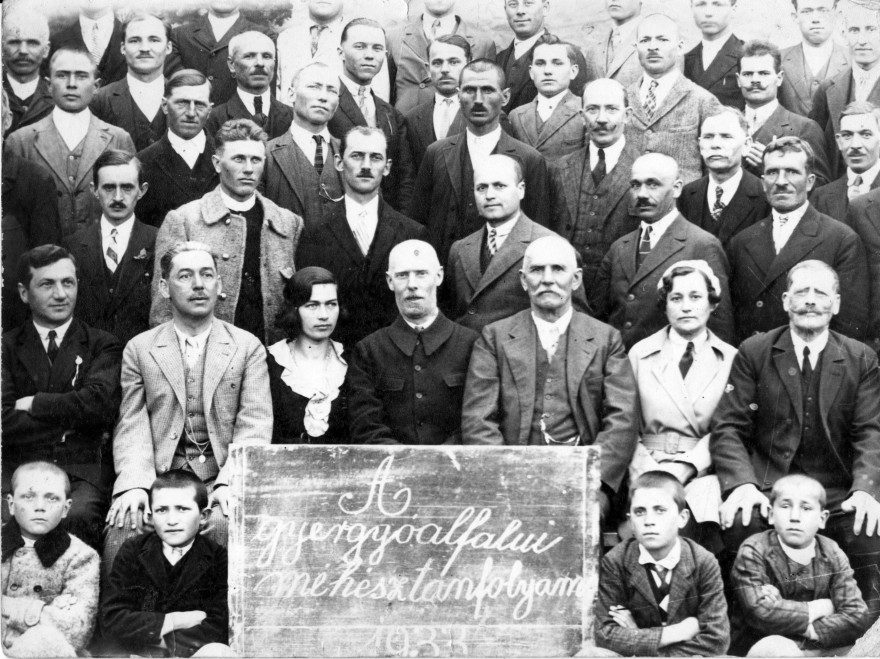 A
gyergyóalfalui
méhésztanfolyam
1933